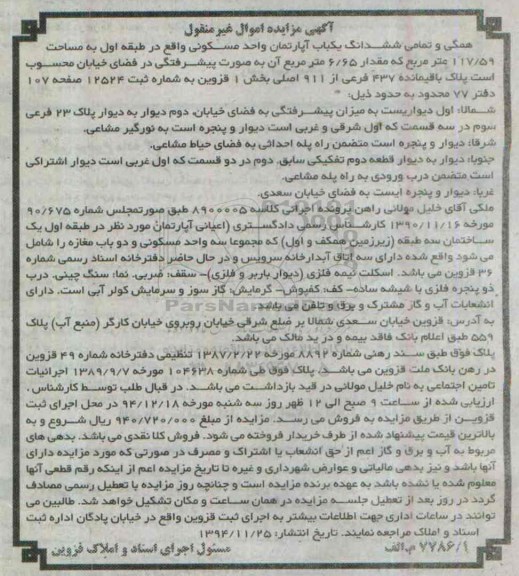 آگهی مزایده اموال غیرمنقول
همگی و تمامی ششدانگ یکباب آپارتمان واحد مسکونی واقع در طبقه اول به مساحت
۱۱۷/۵۹ متر مربع که مقدار ۶/۶۵ متر مربع آن به صورت پیشرفتگی در فضای خیابان محسوب
است پلاک باقیمانده ۴۳۷ فرعی از ۹۱۱ اصلی بخش ۱ قزوین به شماره ثبت ۱۲۵۲۴ صفحه ۱۰۷
دفتر ۷۷ محدود به حدود ذیل:
شمالا: اول دیواریست به میزان پیشرفتگی به فضای خیابان، دوم دیوار به دیوار پلاک ۲۳ فرعی
سوم در سه قسمت که اول شرقی و غربی است دیوار و پنجره است به نورگیر مشاعی.
شرقا: دیوار و پنجره است متضمن راه پله احداثی به فضای حیاط مشاعی.
جنوبا: دیوار به دیوار قطعه دوم تفکیکی سابق، دوم در دو قسمت که اول غربی است دیوار اشتراکی
است متضمن درب ورودی به راه پله مشاعی.
غربا: دیوار و پنجره ایست به فضای خیابان سعدی.
ملکی آقای خلیل مولائی راهن پرونده اجرائی کلاسه ۸۹۰۰۰۰۵ طبق صورتمجلس شماره ۹۰/۶۷۵
مورخه ۱۳۹۰/۱۱/۱۶ کارشناس رسمی دادگستری (اعیانی آپارتمان مورد نظر در طبقه اول یک
ساختمان سه طبقه (زیرزمین همکف و اول) که مجموعا سه واحد مسکونی و دو باب مغازه را شامل
می شود واقع شده دارای سه اتاق آبدارخانه سرویس و در حال حاضر دفترخانه اسناد رسمی شماره
۳۶ قزوین می باشد. اسکلت نیمه فلزی (دیوار باربر و فلزی)- سقف: ضربی. نما: سنگ چینی. درب
دو پنجره فلزی با شیشه ساده- کف: کفپوش- گرمایش: گاز سوز و سرمایش کولر آبی است. دارای
انشعابات آب و گاز مشترک و برق و تلفن می باشد.
به آدرس: قزوین خیابان سعدی شمالا بر ضلع شرقی خیابان روبروی خیابان کارگر (منبع آب) پلاک
۵۵۹ طبق اعلام بانک فاقد بیمه و در ید مالک می باشد.
پلاک فوق طبق سند رهنی شماره ۸۸۹۲ مورخه ۱۳۸۷/۲/۲۲ تنظیمی دفترخانه شماره ۴۹ قزوین
در رهن بانک ملت قزوین می باشد. پلاک فوق طی شماره ۱۰۴۶۳۸ مورخه ۱۳۸۹/۹/۷ اجرائیات
تامین اجتماعی به نام خلیل مولائی در قید بازداشت می باشد. در قبال طلب توسط کارشناس،
ارزیابی شده از ساعت ۹ صبح الی ۱۲ ظهر روز سه شنبه مورخه ۹۴/۱۲/۱۸ در محل اجرای ثبت
قزوین از طریق مزایده به فروش می رسد. مزایده از مبلغ ۹۴۰/۷۲۰/۰۰۰ ریال شروع و به
بالاترین قیمت پیشنهاد شده از طرف خریدار فروخته می شود. فروش کلا نقدی می باشد. بدهی های
مربوط به آب و برق و گاز اعم از حق انشعاب یا اشتراک و مصرف در صورتی که مورد مزایده دارای
آنها باشد و نیز بدهی مالیاتی و عوارض شهرداری و غیره تا تاریخ مزایده اعم از اینکه رقم قطعی آنها
معلوم شده یا نشده باشد به عهده برنده مزایده است و چنانچه روز مزایده با تعطیل رسمی مصادف
گردد در روز بعد از تعطیل جلسه مزایده در همان ساعت و مکان تشکیل خواهد شد. طالبین می
توانند در ساعات اداری جهت اطلاعات بیشتر به اجرای ثبت قزوین واقع در خیابان پادگان اداره ثبت
اسناد و املاک مراجعه نمایند. تاریخ انتشار: ۱۳۹۴/۱۱/۲۵
۷۷۸۶/۱ م.الف مسئول اجرای اسناد و املاک قزوین